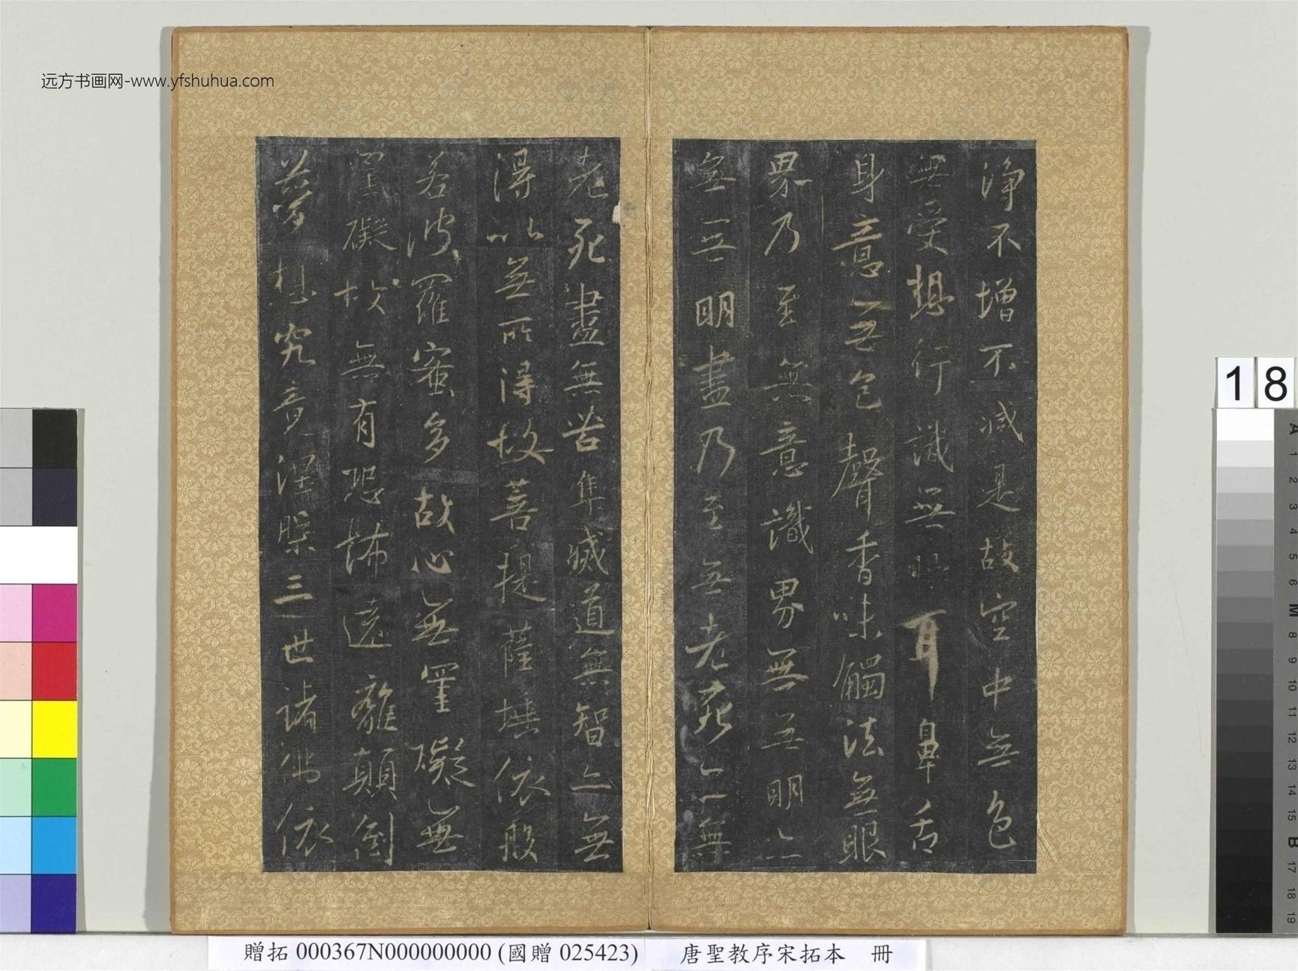 远方书画网-www.yfshuhua.com
淨不增不減是故空中無色
無受想行識無眼耳鼻舌
身意無色聲香味觸法無眼
界乃至無意識界無無明亦
無無明盡乃至無老死亦無
老死盡無苦集滅道無智亦無
得以無所得故菩提薩埵依般
若波羅蜜多故心無罣礙無
罣礙故無有恐怖遠離顛倒
夢想究竟涅槃三世諸佛依
18
A 1 2 3 4 5 6 M 8 9 10 11 12 13 14 15 B 17 18 19
贈拓 000367N000000000 (國贈 025423)
唐聖教序宋拓本 冊